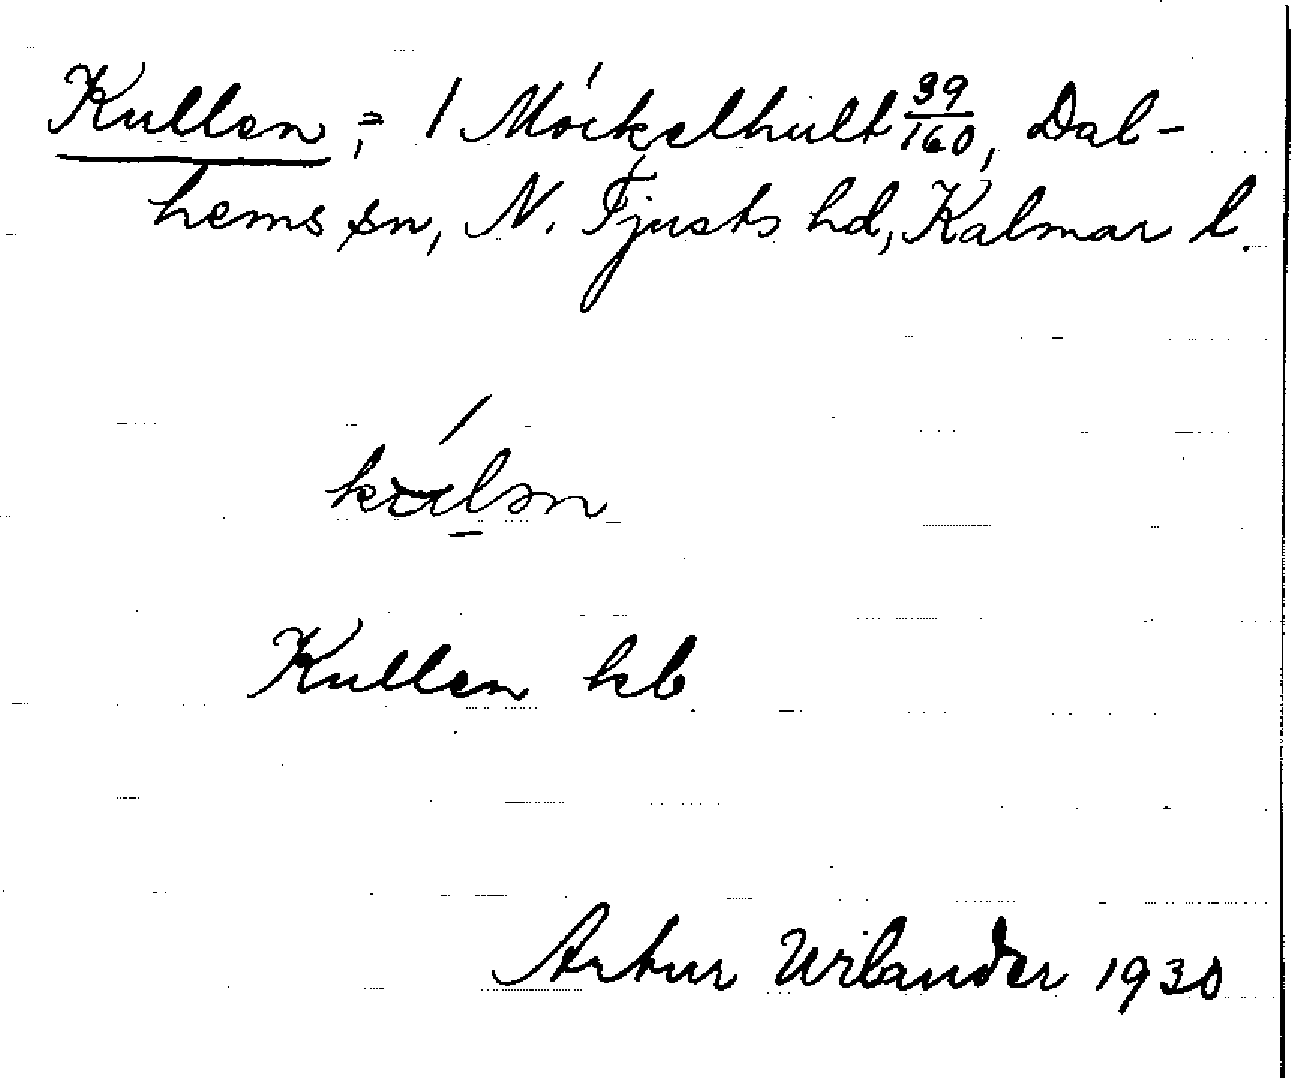 Kullen, = / Möckelhult 39/160, Dal-
hems sn, N. Tjusts hd, Kalmar l.
Kullen kb
Artur Urlander 1930